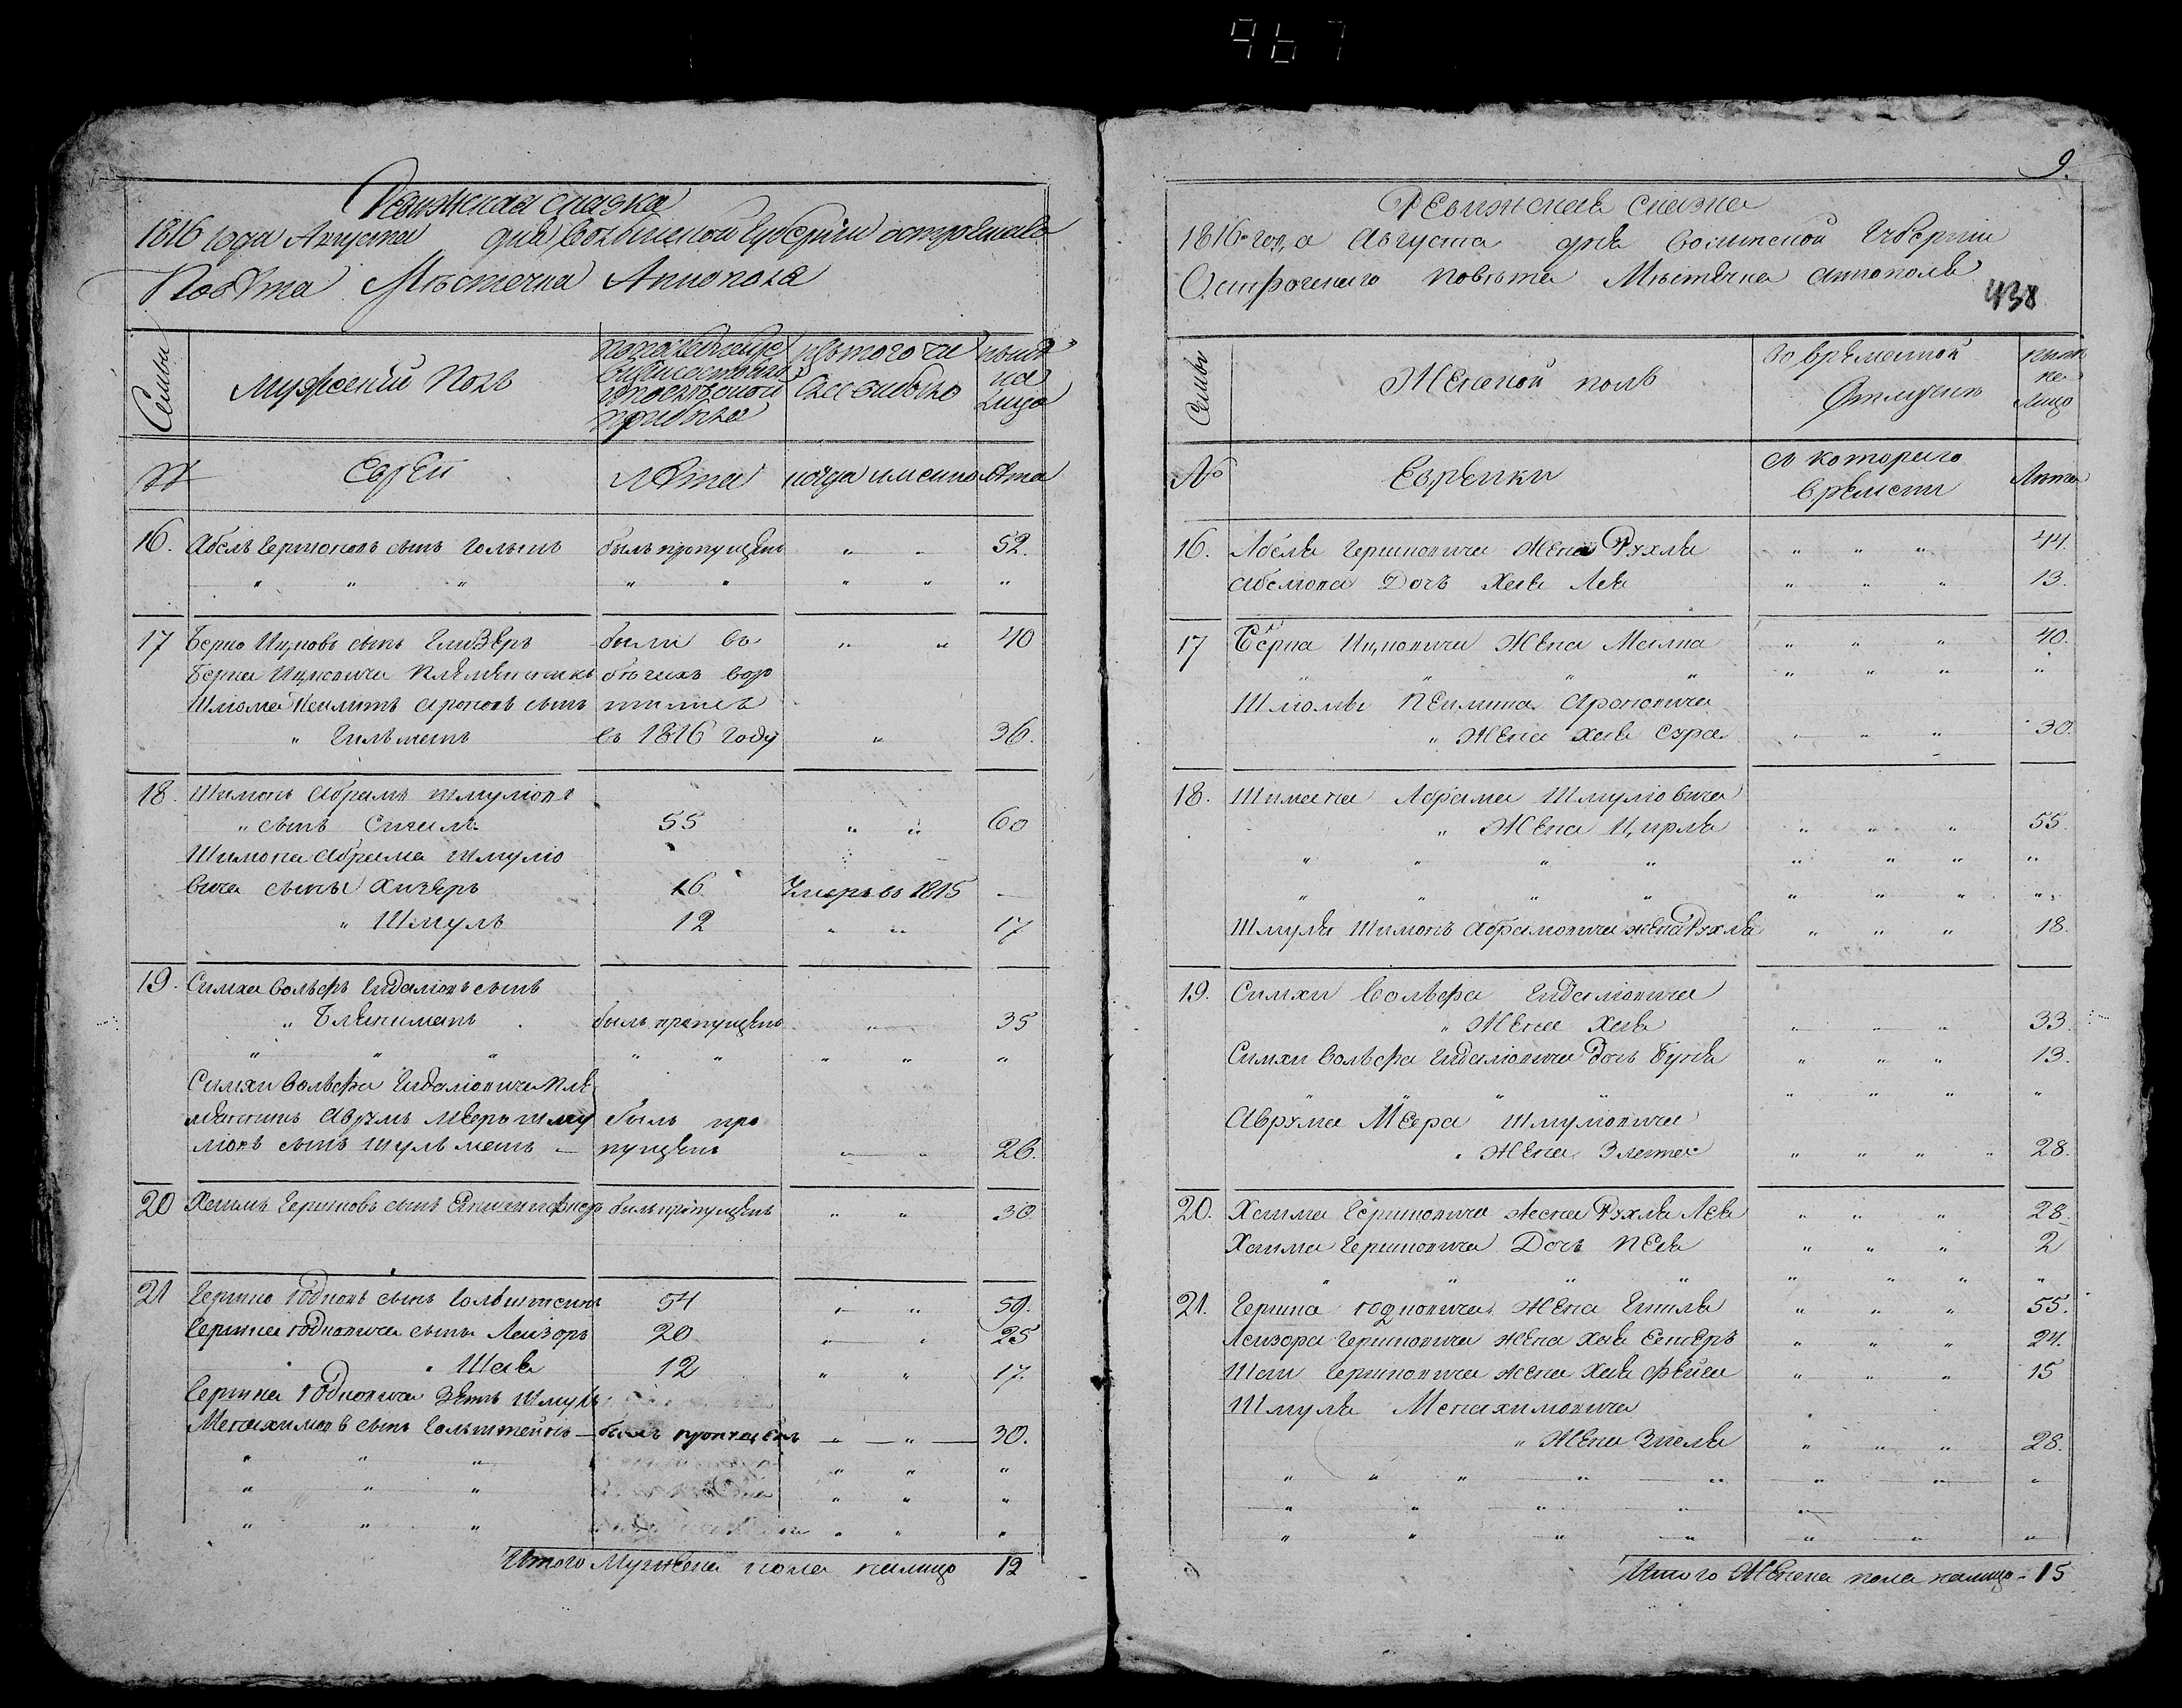 967
Ревижская сказка
1816 года Августа дня Волынской Губернии острожскаго
Повѣта Мѣстечка Аннополя
Семьи
Мужеский Полъ
по последней
ревизии состояло
и после оной
прибыло
изъ того чи
сла выбыло
ныне
на
лицо
№
Евреи
Лѣта
когда именно
Лѣта
16. Абель Гершоновъ сынъ Гольцъ былъ пропущенъ " " 52.
" " " " " " " "
17 Берко Ицковъ сынъ Глизеръ были въ " " 40
Берка Ицковича племянникъ бѣгахъ воз
Шлома Пейлитъ Ароновъ сынъ
" Гильманъ въ 1816 году " 36.
18. Шимонъ Абрамъ Шмулiовъ
" сынъ Сигалъ 55 " " 60
Шимона Абрама Шмулiо
вича сыны Хизеръ 16 Умеръ въ 1815 —
" Шмуль 12 " " 17
19. Симха Вольфъ Гидалiовъ сынъ
" Блейхманъ былъ пропущенъ " 35
" " " " " " " "
Симхи Вольфа Гидалiовича пле
мянникъ Аврумъ Мееръ Шму
лiовъ сынъ Шульманъ — былъ про
пущенъ " " 26.
20 Хаимъ Гершковъ сынъ былъ пропущенъ " " 30.
21 Гершко Юдковъ сынъ Гольдштейнъ 54 " " 59.
Гершка Юдковича сыны Лейзоръ 20 " " 25
" Шая 12 " " 17.
Гершка Юдковича Зять Шмуль
Менахимовъ сынъ Гольштейнъ — былъ пропущенъ " " 30.
" " " " " "
" " " " " "
" " " " " "
Итого Мужеска пола налицо 12
9.
Ревижская сказка
1816 года Августа дня Волынской Губернии
Острожскаго повѣта Мѣстечка Аннополя
438
Семьи
Женской полъ
Во временной
Отлучкѣ
ныне
на
лицо
№
Еврейки
съ котораго
времени
Лѣта
16. Абеля Гершковича Жена Рухля " " " 44.
Абелiова Дочь Хая Лея " " " 13.
17 Берка Ицковича Жена Малка " " " 40.
" " " " " " " "
Шломы Пейлита Ароновича
" Жена Хая Сура " " " 30.
18. Шимона Абрама Шмулiовича
" Жена Цирля " " " 55.
" " " " " " " "
" " " " " " " "
Шмуля Шимонъ Абрамовича жена Рухля " " " 18.
19. Симхи Вольфа Гидалiовича
" Жена Хая " " " 33.
Симхи Вольфа Гидалiовича Дочь Буня " " " 13.
" " " " " " "
Аврума Меера Шмулiовича
" Жена Злата " " " " 28.
20. Хаима Гершковича жена Рухля Лея " " " 28.
Хаима Гершковича Дочь Пея " " " 2
" " " " " " " "
21. Гершка Юдковича Жена Гитля " " " 55.
Лейзора Гершковича жена Хая Естеръ " " " 24.
Шаи Гершковича жена Хая Фейга " " " 15
Шмуля Менахимовича
" Жена Зисля " " " 28.
" " " " " " " "
" " " " "
" " " " " " "
Итого Женска пола налицо - 15